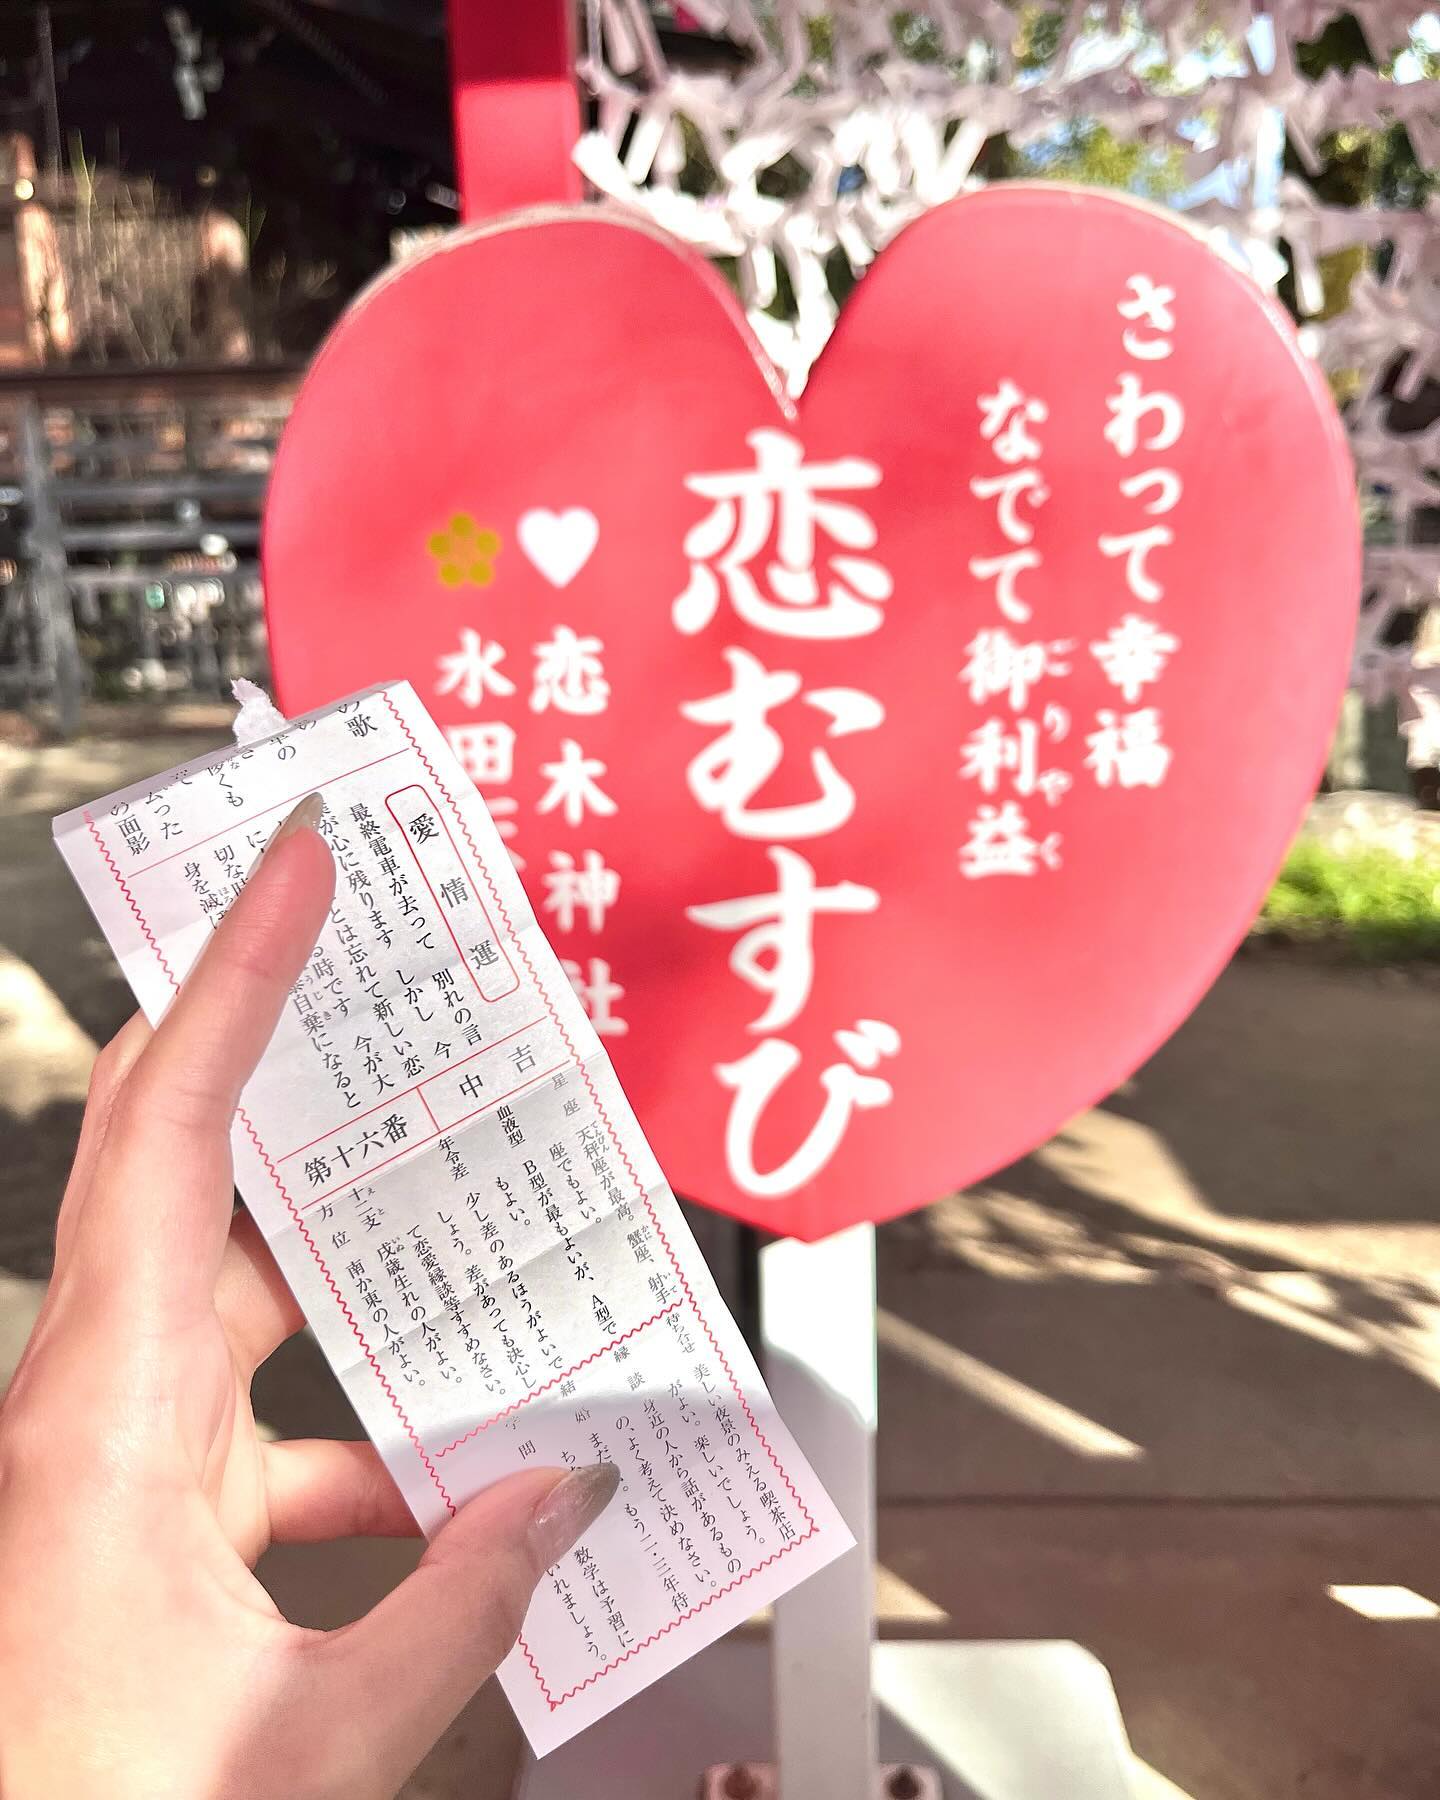 さわって幸福
なでて御利益
ごりやく
恋むすび
恋木神社
水田
歌
の
くも
った
の面影
愛情運
最終電車が去って 別れの言
が心に残ります しかし 今
とは忘れて新しい恋
る時です 今が大
切な時
自棄になると
身を滅ぼ
吉
中
第十六番
星座 天秤座が最高。蟹座、射手
座でもよい。
血液型 B型が最もよいが、A型で
もよい。
年令差 少し差のあるほうがよいで
しょう。差があっても決心し
て恋愛縁談等すすめなさい。
十二支 戌歳生れの人がよい。
方位 南か東の人がよい。
待ち合せ 美しい夜景のみえる喫茶店
がよい。楽しいでしょう。
縁談 身近の人から話があるもの
の、よく考えて決めなさい。
結婚 まだ
。もう二・三年待
ち
学問 数学は予習に
いれましょう。